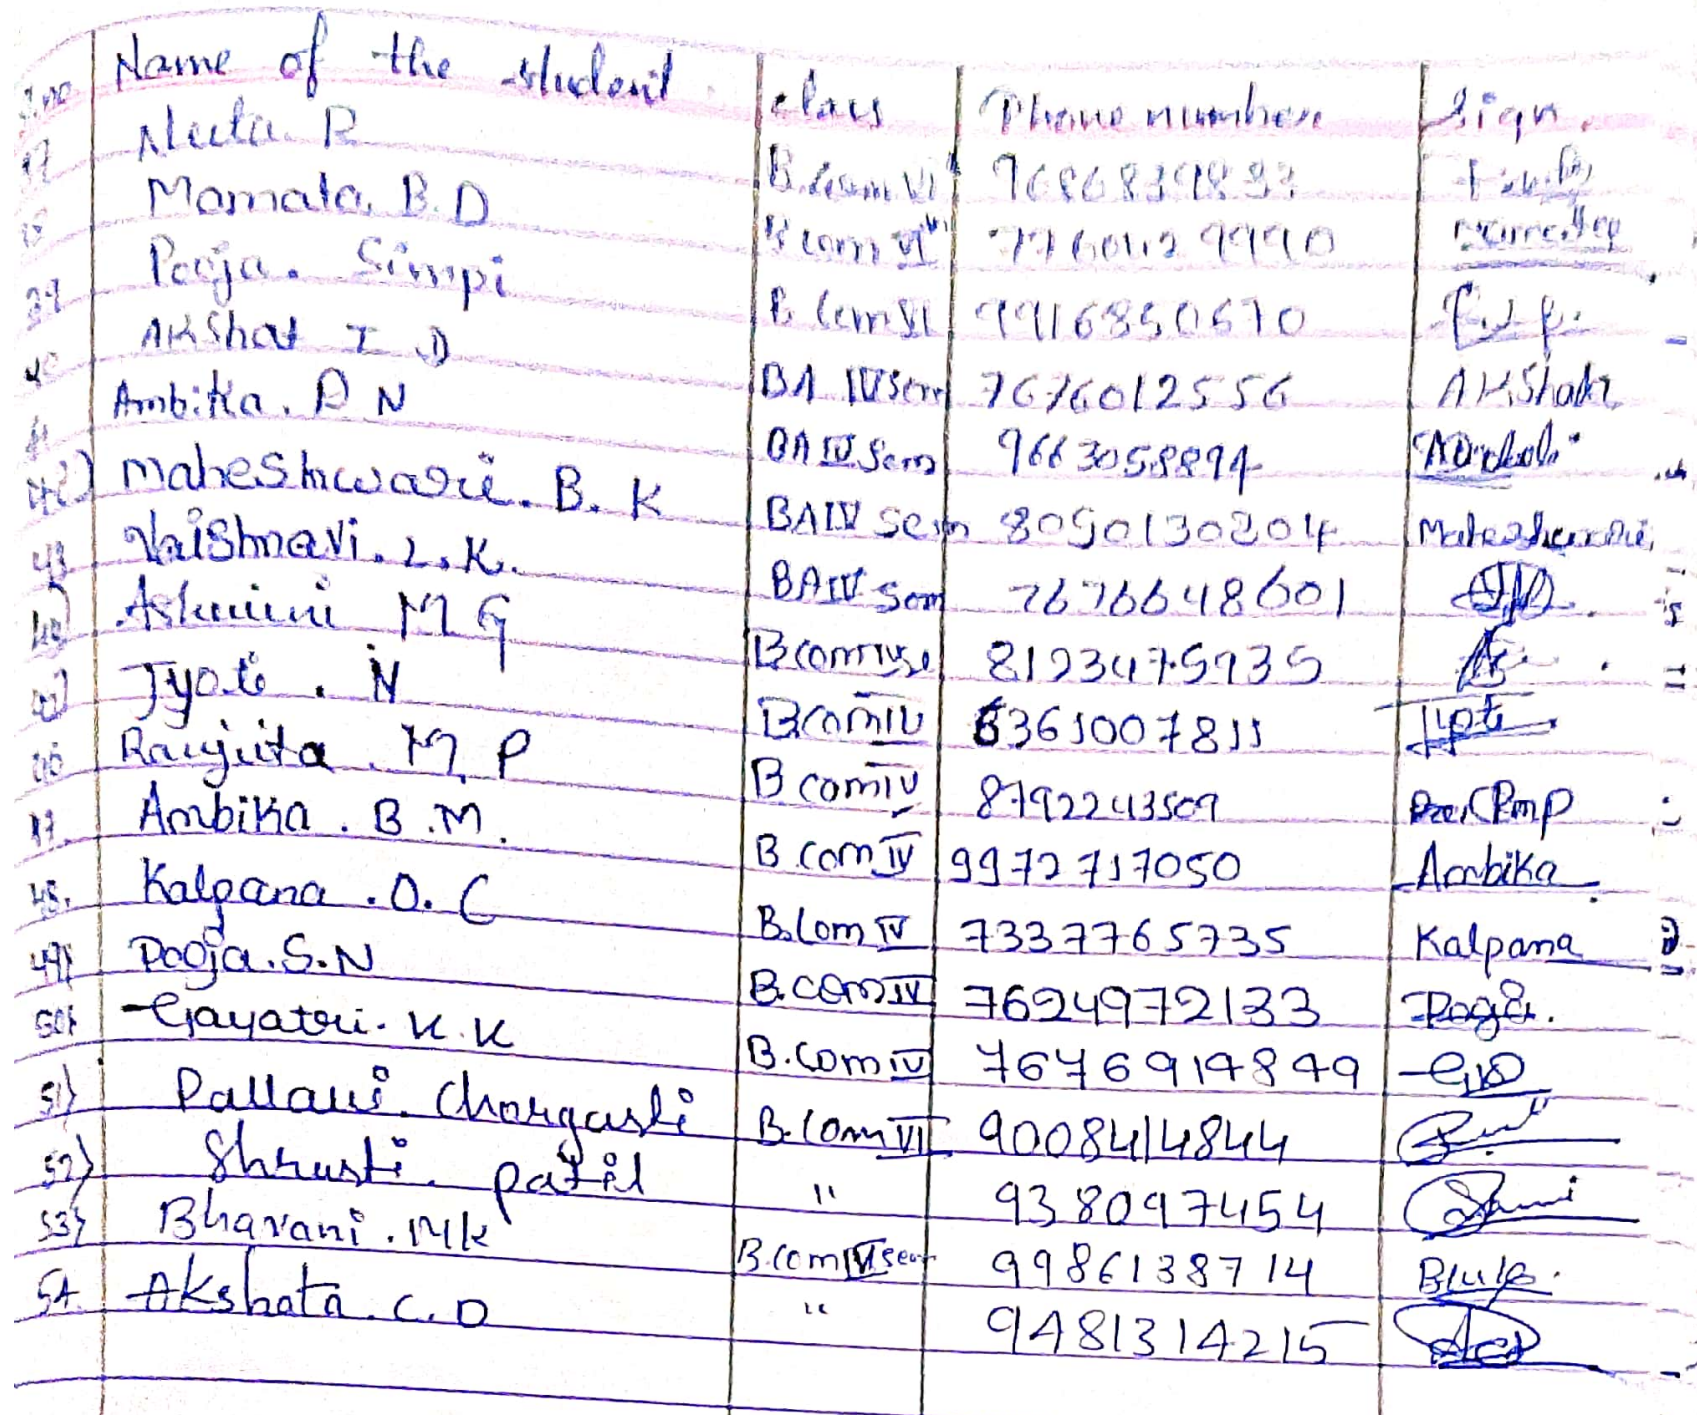 S.no Name of the student class Phone number Sign.
37 Neeta R B.com VI
38 Mamata. B.D B com VI 9990 Mamata
39 Pooja. Simpi B com VI 9916850670
40 AKShat I D BA IV Sem 7676012556 AKShata
41 Ambika. D N BA IV Sem 9663058894
42) Maheshwari. B. K BA IV Sem 8050130204 Maheshwari
43 Vaishnavi. L. K. BA IV Sem 7676648601
44) Ashwini M G B com IV Se 8123475935
45) Jyoti . N B com IV 6361007811 Jyoti
46 Ranjita M P B com IV 8792243509
47. Ambika . B .M. B com IV 9972717050 Ambika
48. Kalpana . O. C B.com IV 7337765735 Kalpana
49) Pooja. S. N B.com IV 7624972133 Pooja.
50) Gayatri. K. K B.com IV 7676914849
51) Pallavi. Chorgasti B.com VI 9008414844
52) Shrusti. patil " 938097454
53) Bhavani . MK B.com VI sem 9986138714
54 Akshata. C. D " 9481314215